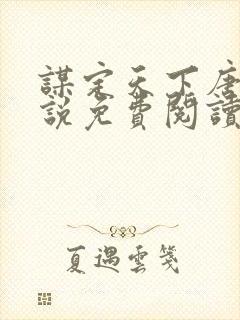 謀定天下唐
說免費閱讀
夏遇雲箋